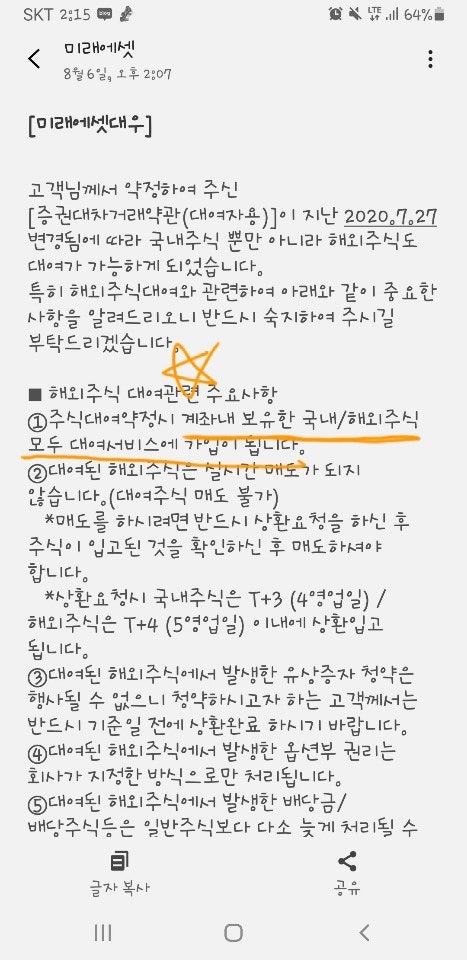 SKT 2:15 blog LTE 64%
미래에셋
8월6일, 오후 2:07
[미래에셋대우]
고객님께서 약정하여 주신
[증권대차거래약관(대여자용)]이 지난 2020.7.27
변경됨에 따라 국내주식 뿐만 아니라 해외주식도
대여가 가능하게 되었습니다.
특히 해외주식대여와 관련하여 아래와 같이 중요한
사항을 알려드리오니 반드시 숙지하여 주시길
부탁드리겠습니다.
■ 해외주식 대여관련 주요사항
①주식대여약정시 계좌내 보유한 국내/해외주식
모두 대여서비스에 가입이 됩니다.
②대여된 해외주식은 실시간 매도가 되지
않습니다.(대여주식 매도 불가)
*매도를 하시려면 반드시 상환요청을 하신 후
주식이 입고된 것을 확인하신 후 매도하셔야
합니다.
*상환요청시 국내주식은 T+3 (4영업일) /
해외주식은 T+4 (5영업일) 이내에 상환입고
됩니다.
③대여된 해외주식에서 발생한 유상증자 청약은
행사될 수 없으니 청약하시고자 하는 고객께서는
반드시 기준일 전에 상환완료 하시기 바랍니다.
④대여된 해외주식에서 발생한 옵션부 권리는
회사가 지정한 방식으로만 처리됩니다.
⑤대여된 해외주식에서 발생한 배당금/
배당주식등은 일반주식보다 다소 늦게 처리될 수
글자 복사
공유